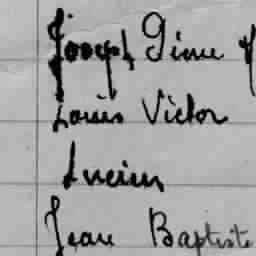 Joseph
Louis Victor
Lucien
Jean Baptiste